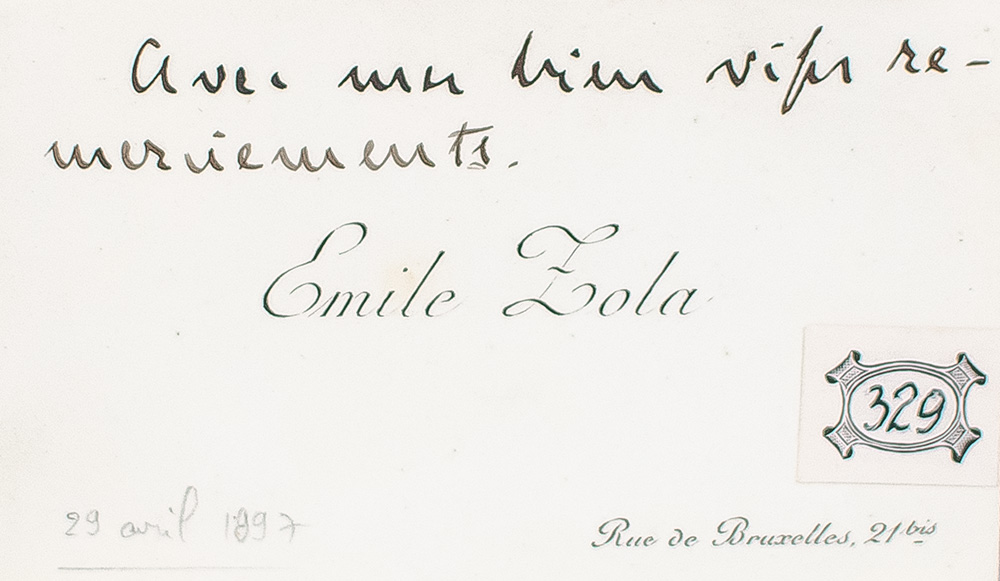 Avec mes bien vifs re-
merciements.
Emile Zola
329
29 avril 1897
Rue de Bruxelles, 21 bis